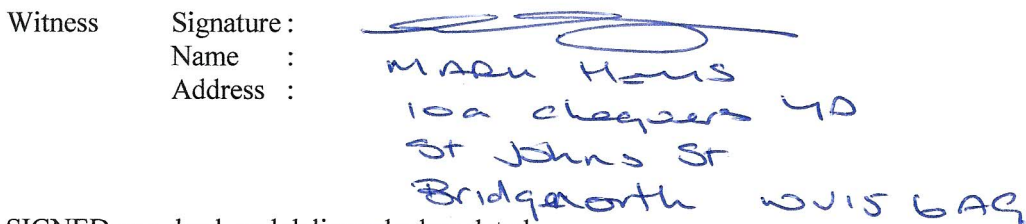 Witness Signature :
Name :
MARK
Address :
10a chequers YD
St Johns St
Bridgnorth WV15 6AG